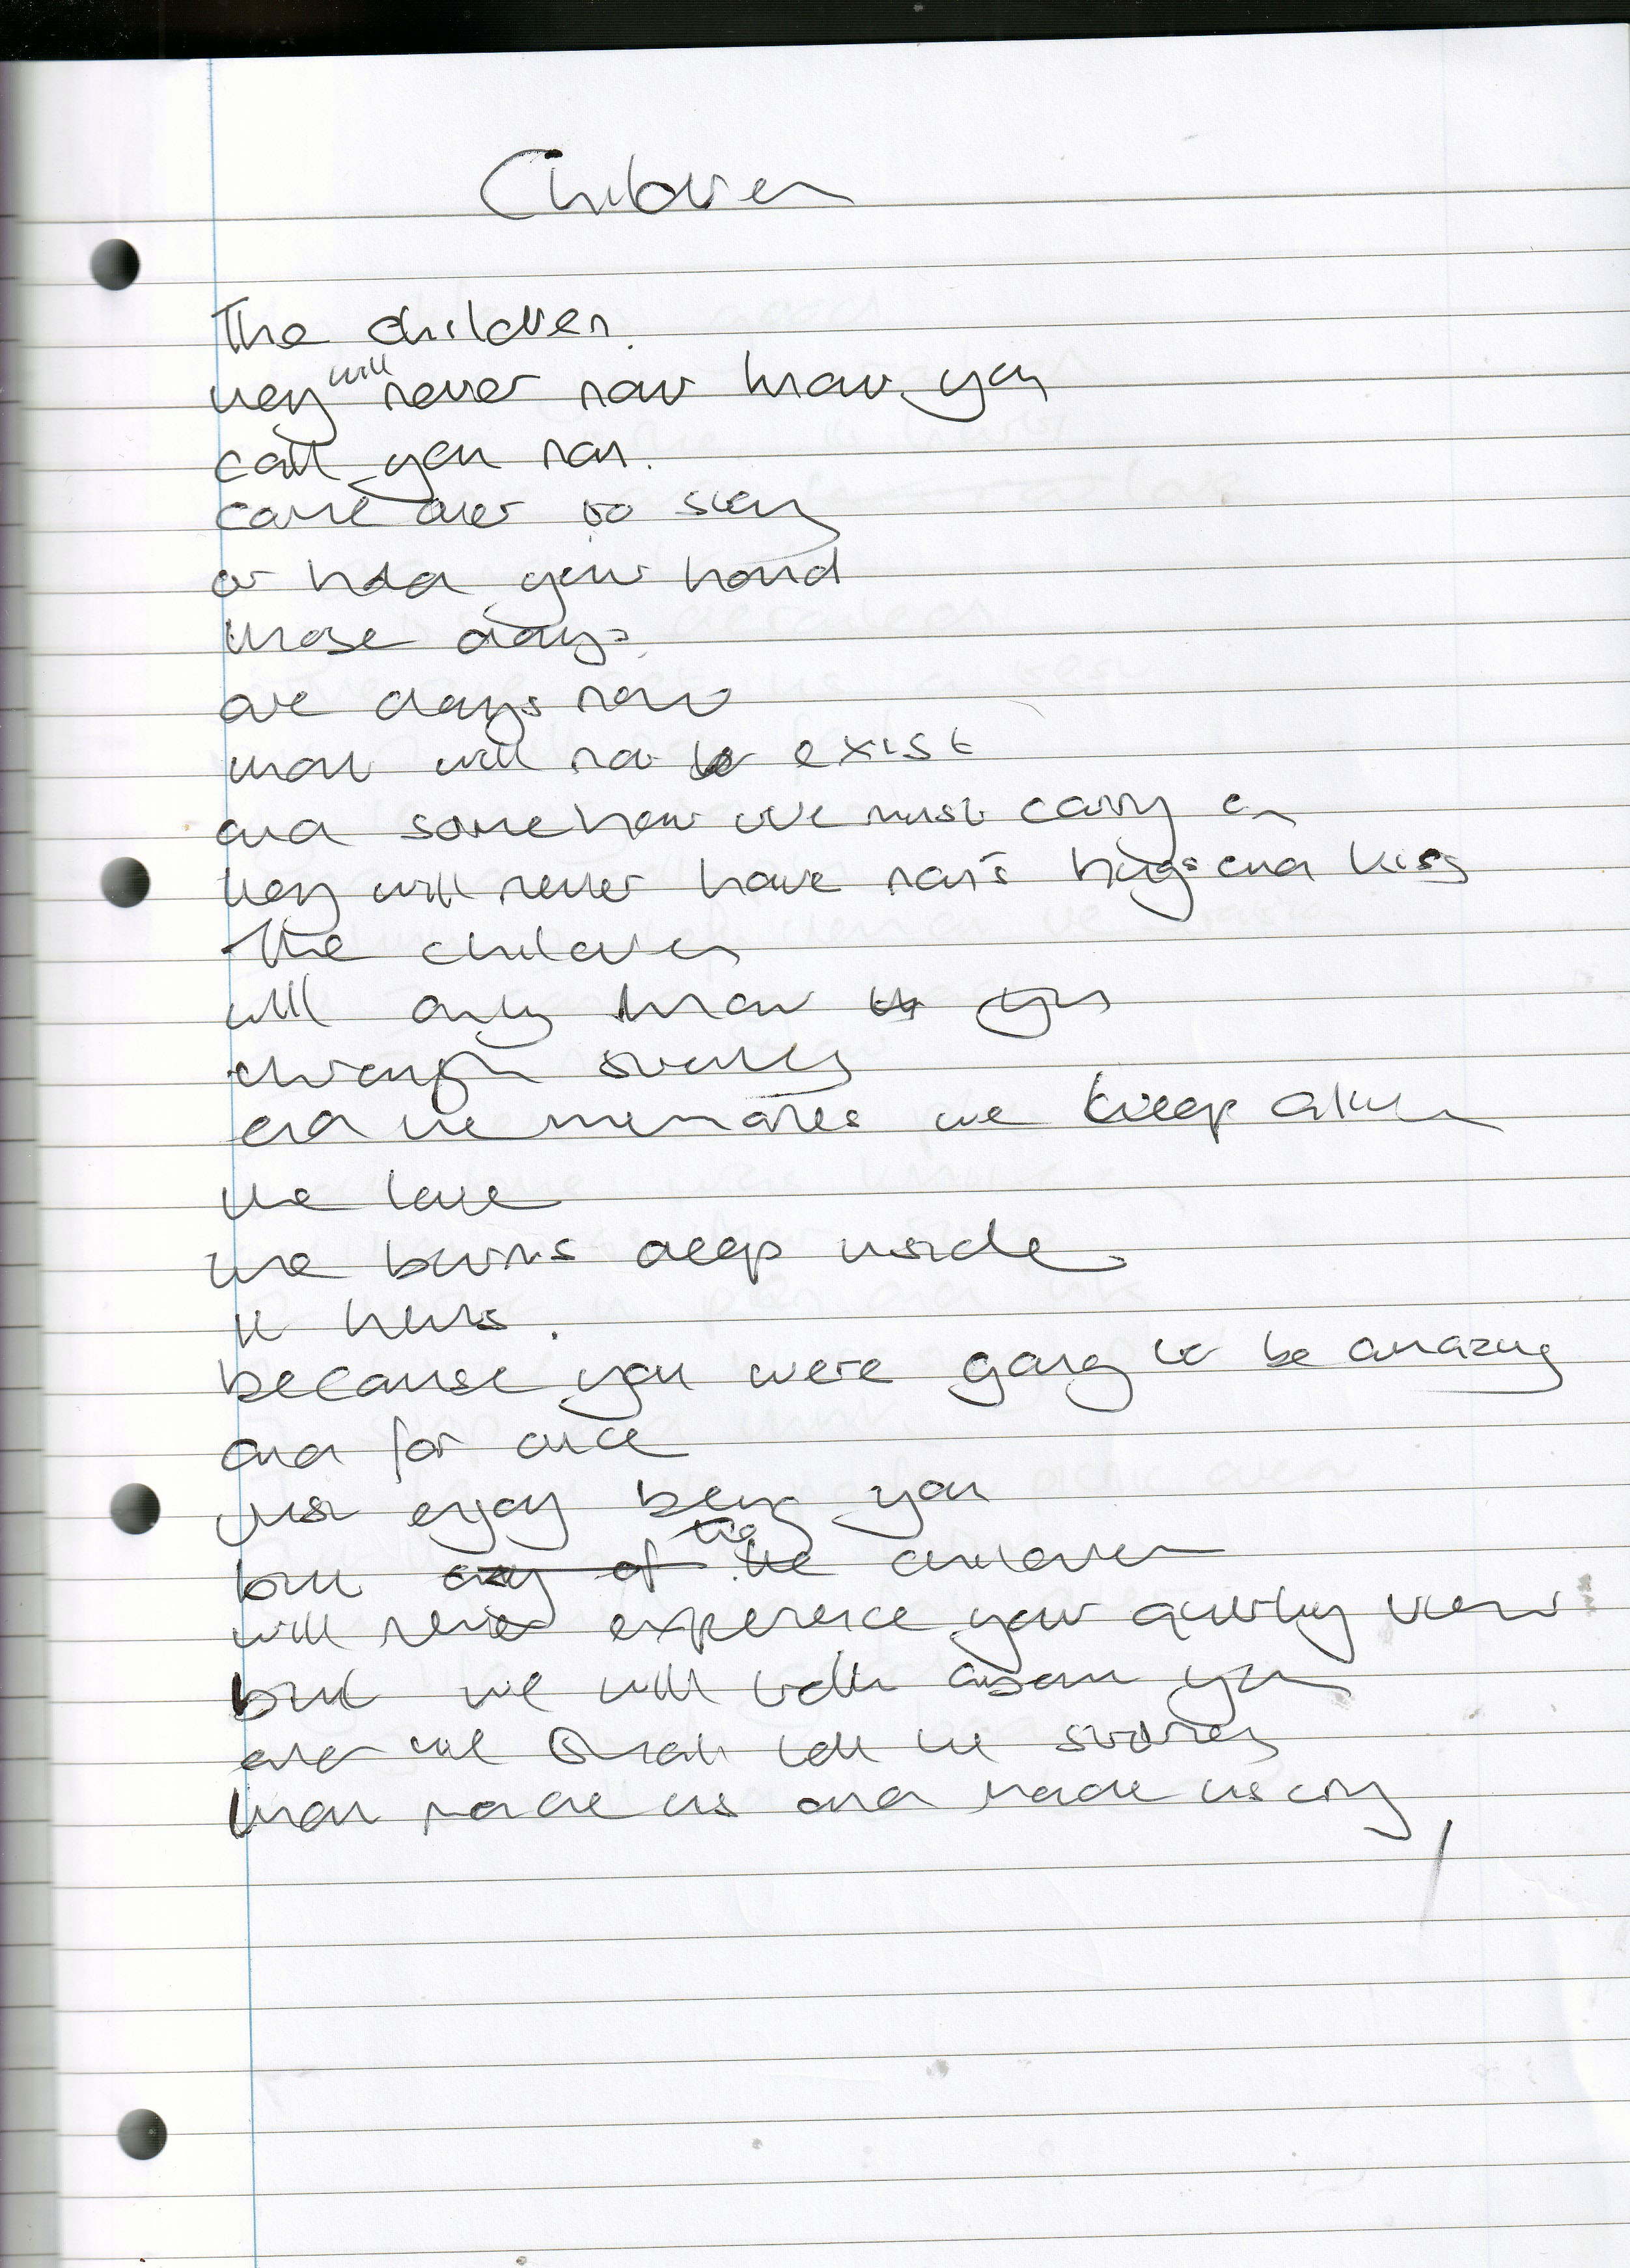 Children
The children.
they will never now know you
call you nan.
come over to stay
or hold your hand
those days.
are days now
that will not exist
and somehow we must carry on
they will never have nan's hugs and kiss
The children
will only know you
through
and the memories we keep alive
the love
the burns deep inside.
it hurts.
because you were going to be amazing
and for once
just enjoy being you
but the children
will never experience your quirky view
but we will talk about you
and we tell the stories
that made us and made us cry